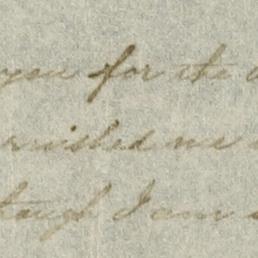 you for the
rnished me
though I am